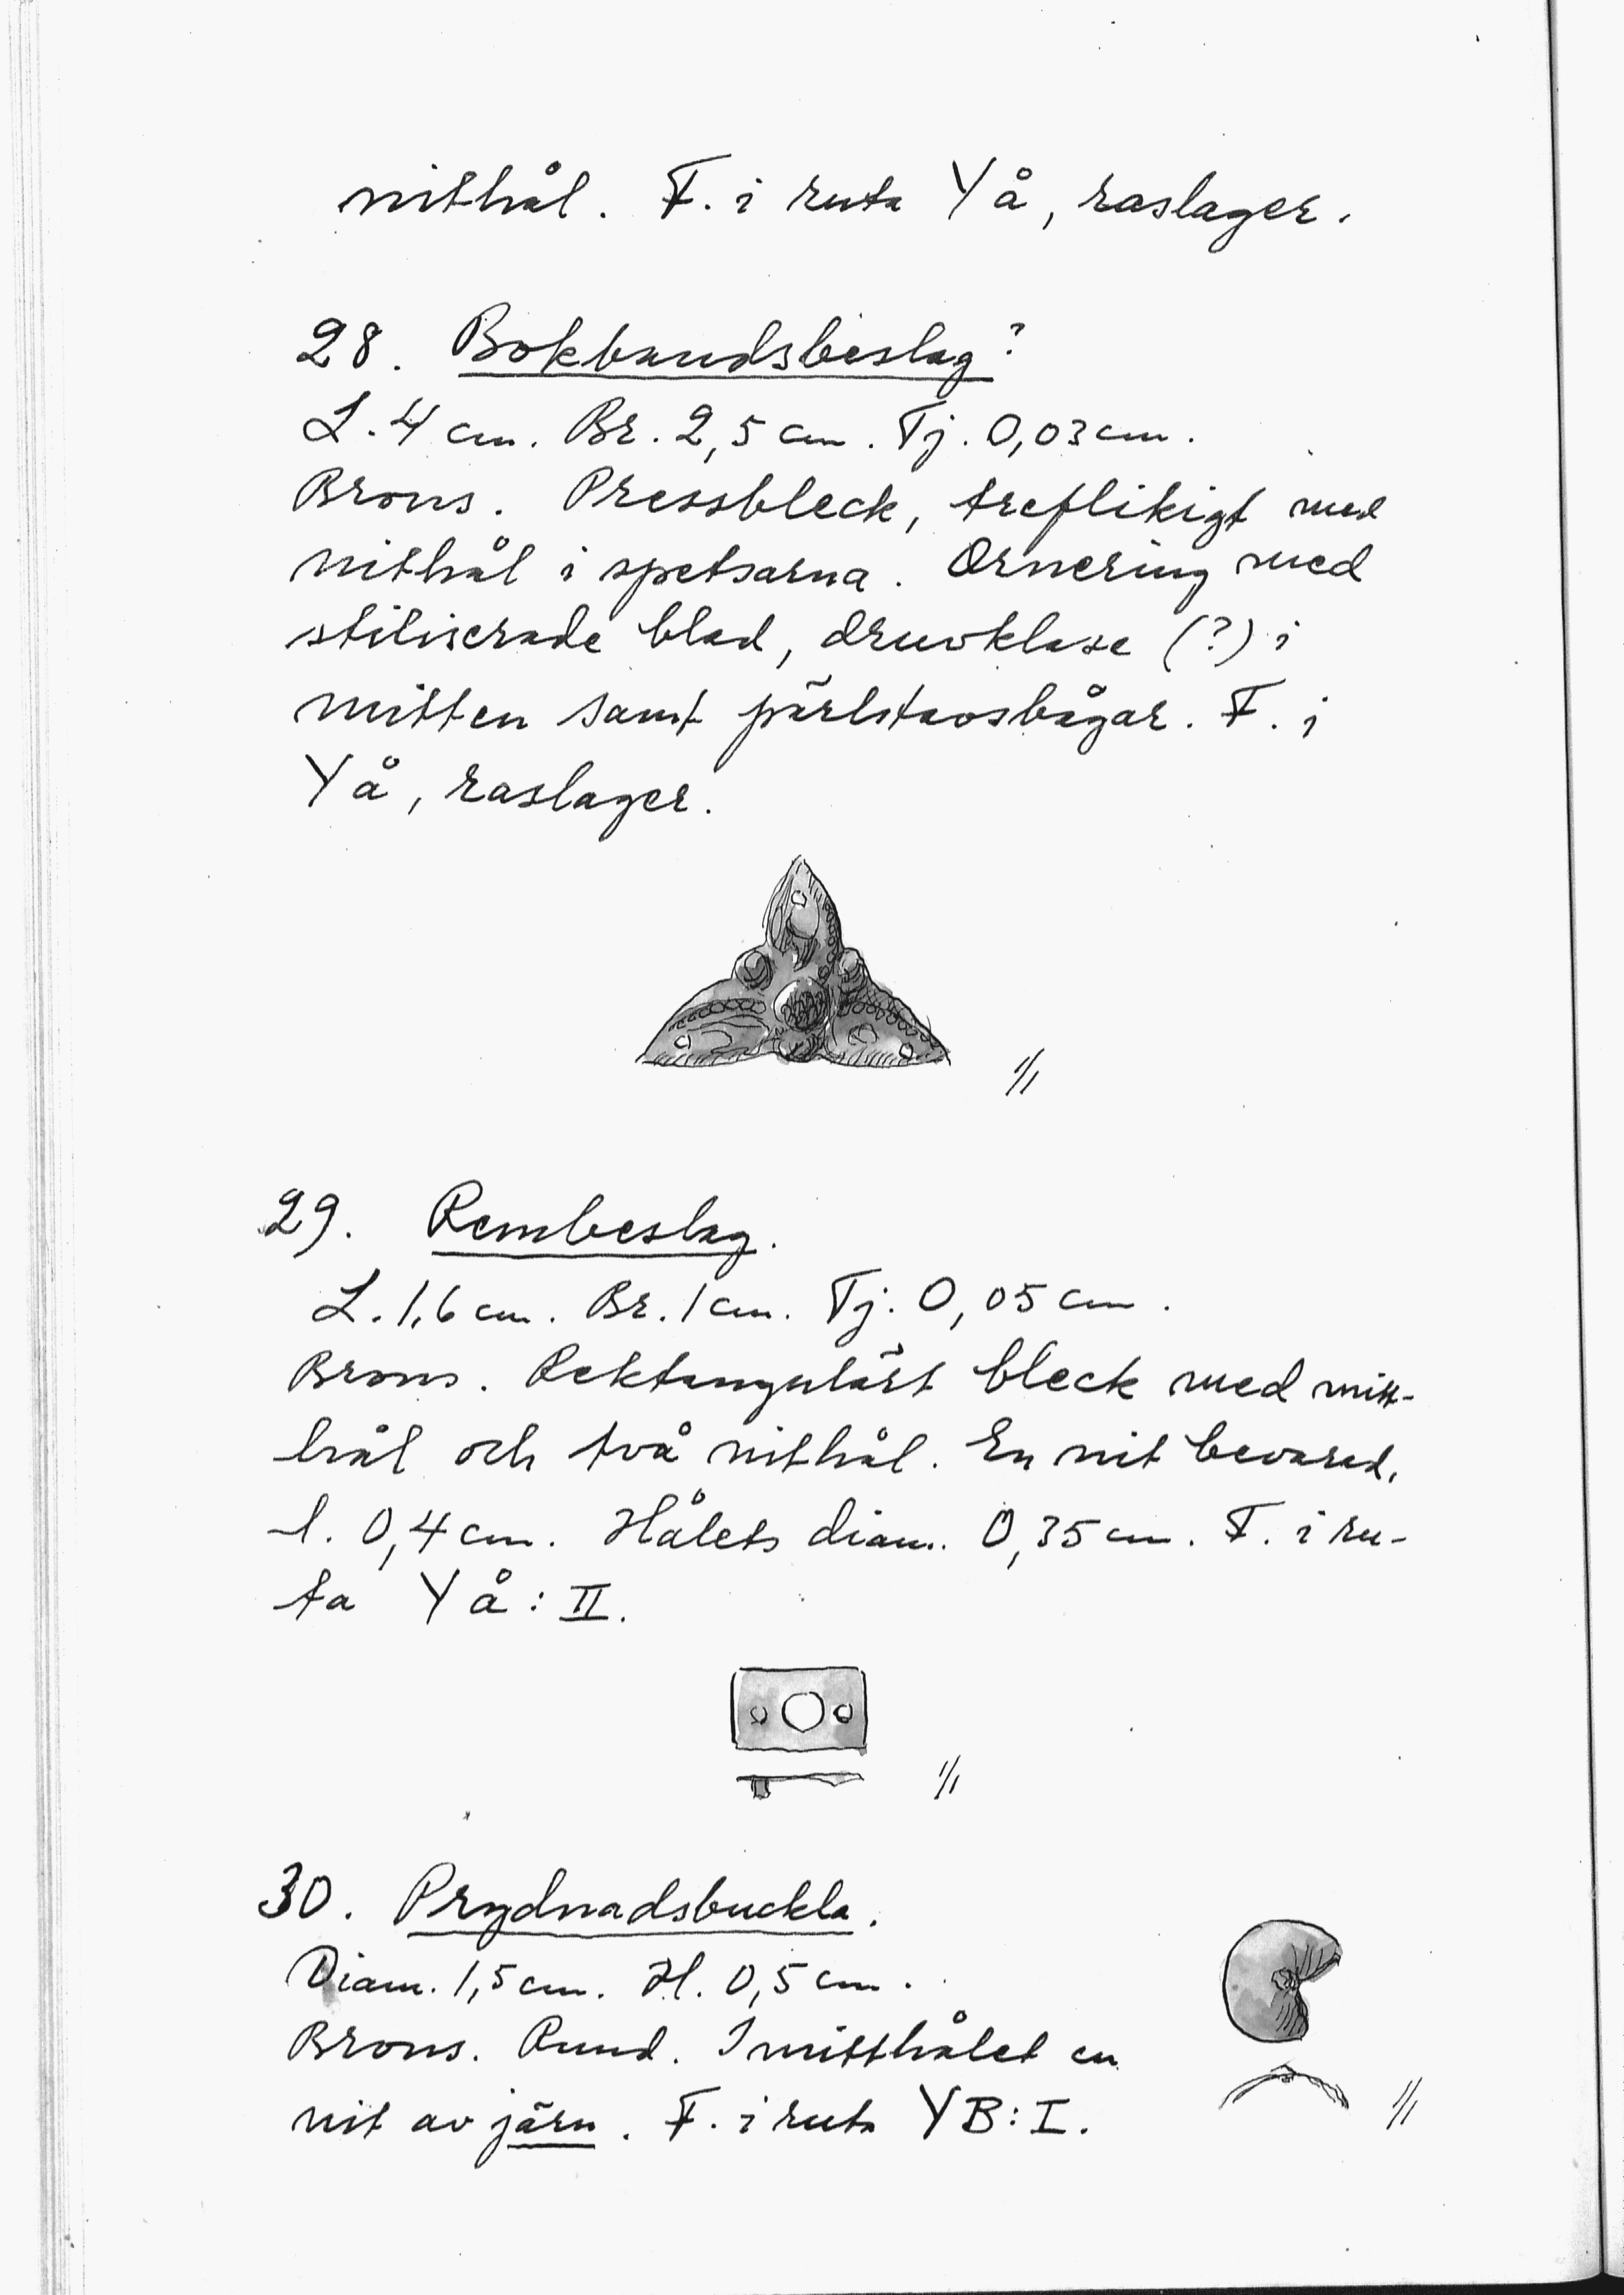 nithål. F. i ruta YÅ, raslager.
28. Bokbandsbeslag?
L. 4 cm. Br. 2,5 cm. Tj. 0,03 cm.
Brons. Pressbleck, treflikigt med
nithål i spetsarna. Ornering med
stiliserade blad, druvklase (?) i
mitten samt pärlstavsbågar. F. i
YÅ, raslager.
1/1
29. Rembeslag.
L. 1,6 cm. Br. 1 cm. Tj. 0,05 cm.
Brons. Rektangulärt bleck med mitt-
hål och två nithål. En nit bevarad,
l. 0,4 cm. Hålets diam. 0,35 cm. F. i ru-
ta YÅ: II.
1/1
30. Prydnadsbuckla.
Diam. 1,5 cm. H. 0,5 cm.
Brons. Rund. I mitthålet en
nit av järn. F. i ruta YB: I.
1/1